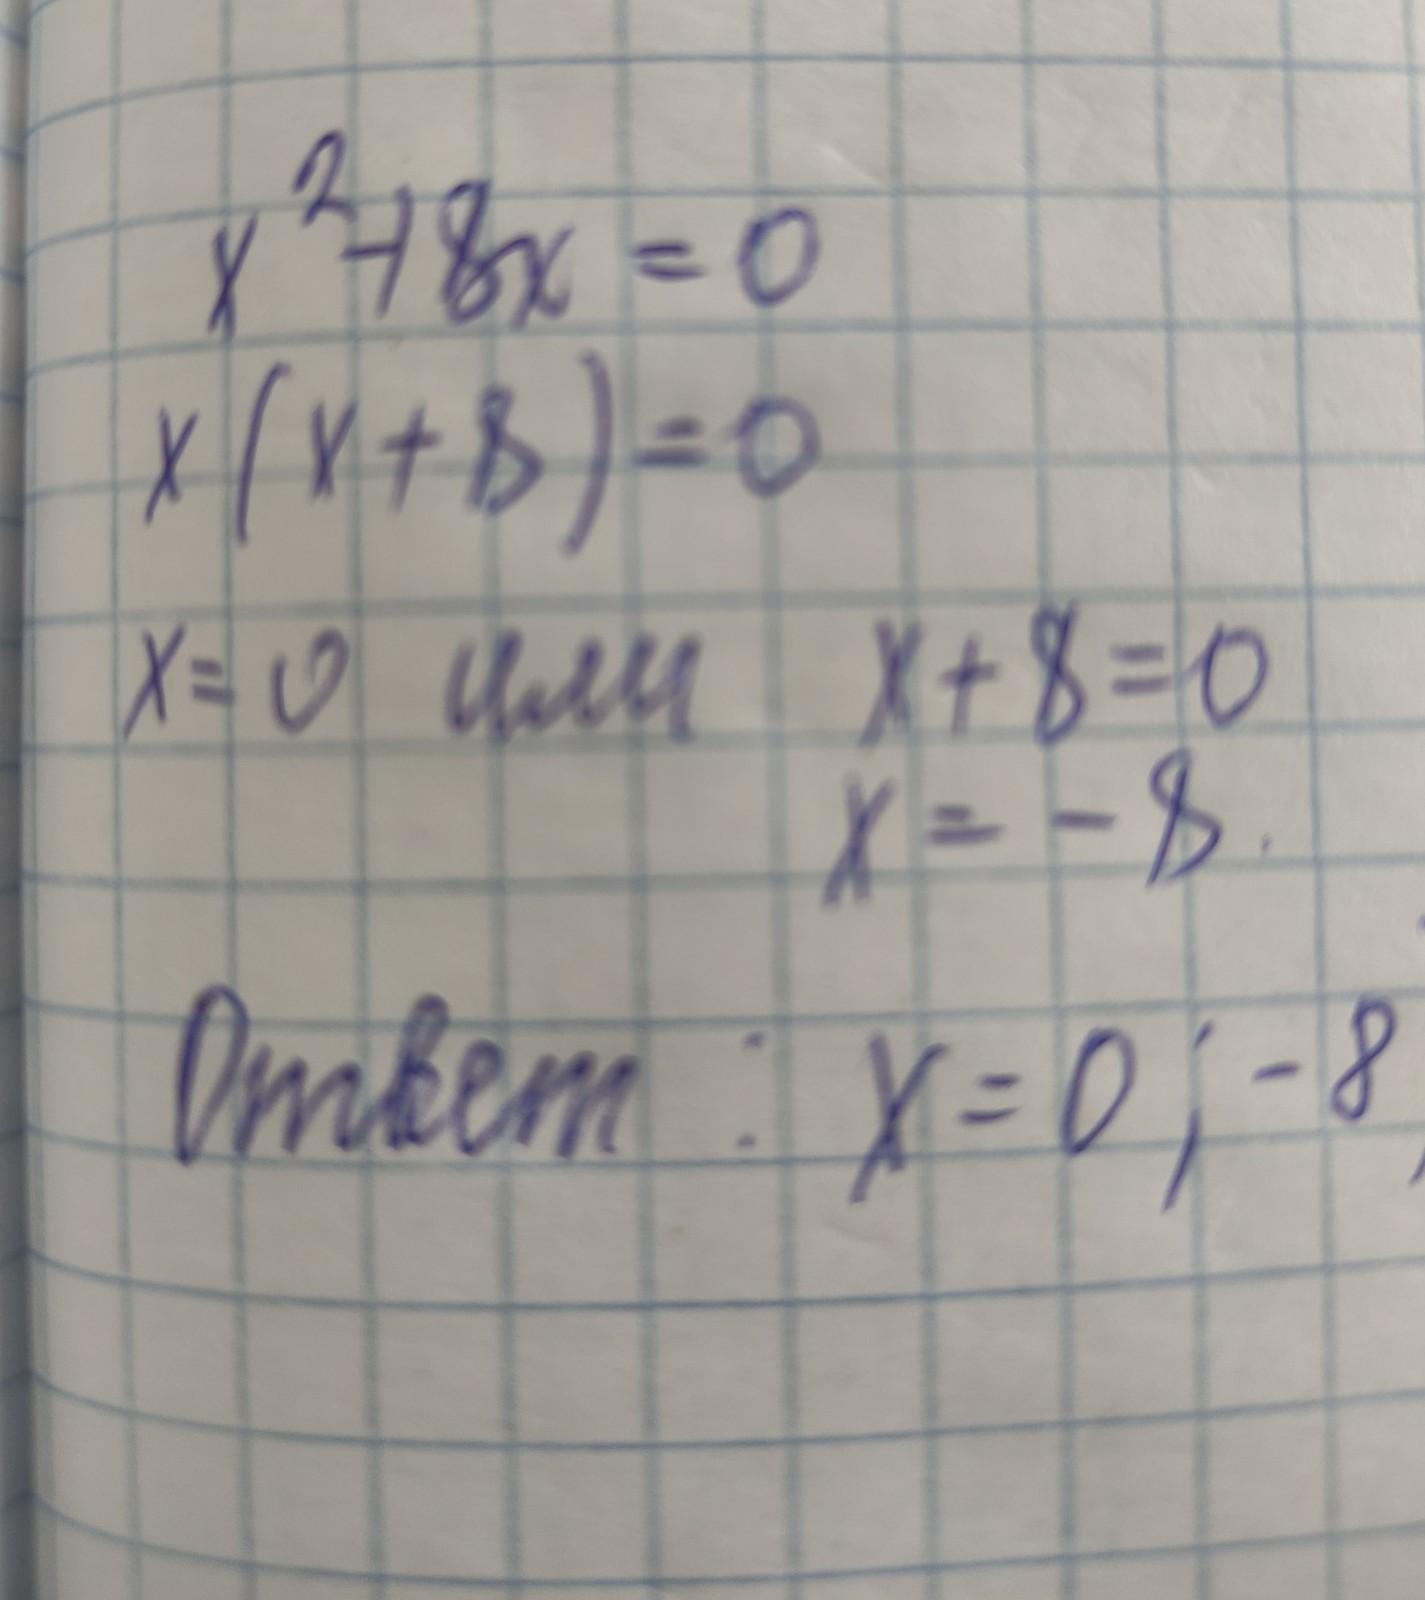 x²+8x=0
x(x+8)=0
x=0 или x+8=0
x=-8.
Ответ: x=0; -8